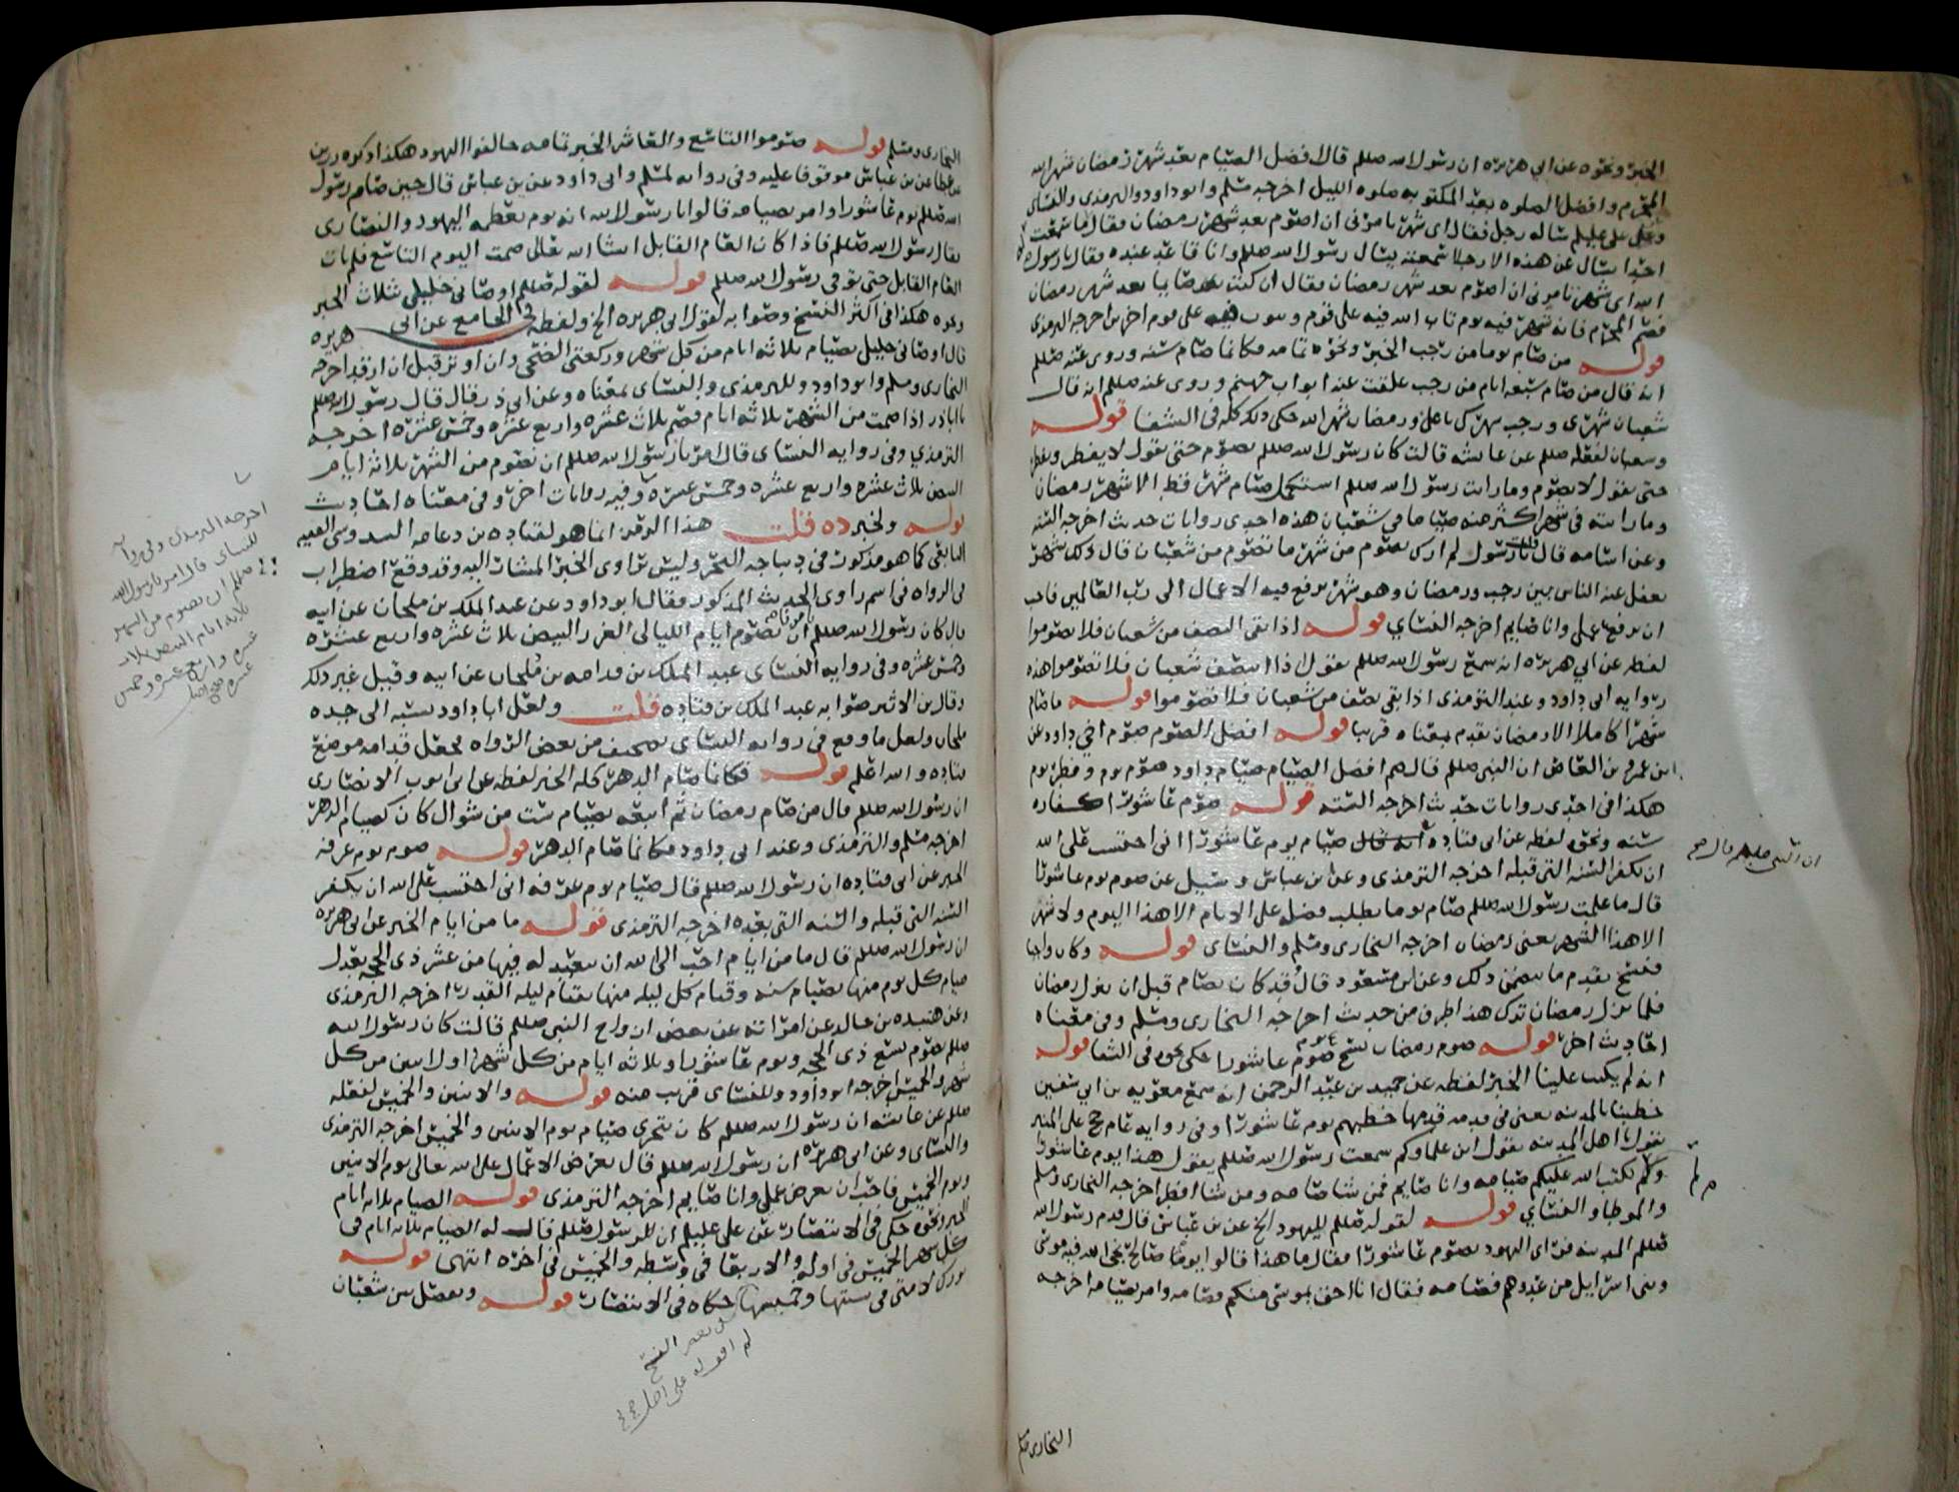 الخبر ونحوه عن ابي هريره ان رسول الله صللم قال افضل الصيام بعد شهر رمضان شهر الله
المحرم وافضل الصلوه بعد المكتوبه صلوه الليل اخرجه مسلم وابو داود والترمذي والنساي
وعن علي عليلم ساله رجل فقال اي شهر تامرني ان اصوم بعد شهر رمضان فقال ما سمعت
احدا يسال عن هذا الا رجلا سمعته يسال رسول الله صللم وانا قاعد عنده فقال يا رسول
الله اي شهر تامرني ان اصوم بعد شهر رمضان فقال ان كنت صايما بعد شهر رمضان
فصم المحرم فانه شهر فيه يوم تاب الله فيه على قوم ويتوب فيه على قوم اخرين اخرجه الترمذي
قوله من صام يوما من رجب الخبر ونحوه تمامه فكانما صام سنه وروي عنه صللم
انه قال من صام سبعه ايام من رجب غلقت عنه ابواب جهنم وروي عنه صللم انه قال
شعبان شهري ورجب شهرك يا علي ورمضان شهر الله حكى ذلك كله في الشفا قوله
وشعبان لفعله صللم عن عايشه قالت كان رسول الله صللم يصوم حتى نقول لا يفطر ويفطر
حتى نقول لا يصوم وما رايت رسول الله صللم استكمل صيام شهر قط الا شهر رمضان
وما رايته في شهر اكثر منه صياما في شعبان هذه احدى روايات حديث اخرجه السته
وعن اسامه قال قلت يا رسول لم ارك تصوم من شهر ما تصوم من شعبان قال ذلك شهر
يغفل عنه الناس بين رجب ورمضان وهو شهر ترفع فيه الاعمال الى رب العالمين فاحب
ان يرفع عملي وانا صايم اخرجه النساي قوله اذا بقي النصف من شعبان فلا تصوموا
لفظه عن ابي هريره انه سمع رسول الله صللم يقول اذا انتصف شعبان فلا تصوموا هذه
روايه ابي داود وعند الترمذي اذا بقي نصف من شعبان فلا تصوموا قوله ما صام
شهرا كاملا الا رمضان تقدم معناه قريبا قوله افضل الصوم صوم اخي داود عن
ابن عمرو بن العاص ان النبي صللم قال صم افضل الصيام صيام داود صوم يوم وفطر يوم
هكذا في احدى روايات حديث اخرجه السته قوله صوم عاشورا كفاره
سنه ونحوه لفظه عن ابي قتاده انه قال صيام يوم عاشورا اني احتسب على الله
ان يكفر السنه التي قبله اخرجه الترمذي وعن ابن عباس وسيل عن صوم يوم عاشورا
قال ما علمت رسول الله صللم صام يوما يطلب فضله على الايام الا هذا اليوم ولا شهر
الا هذا الشهر يعني رمضان اخرجه البخاري ومسلم والنساي قوله وكان واجبا
فنسخ تقدم ما يتضمن ذلك وعن ابن مسعود قال قد كان يصام قبل ان ينزل رمضان
فلما نزل رمضان ترك هذا طرف من حديث اخرجه البخاري ومسلم وفي معناه
احاديث اخر قوله صوم رمضان نسخ صوم عاشورا حكى نحوه في الشفا قوله
انه لم يكتب علينا الخبر لفظه عن حميد بن عبد الرحمن انه سمع معويه بن ابي سفين
خطيبا بالمدينه يعني في قدمه قدمها خطبهم يوم عاشورا وفي روايه عام حج على المنبر
يقول يا اهل المدينه يقول اين علماوكم سمعت رسول الله صللم يقول هذا يوم عاشورا
ولم يكتب الله عليكم صيامه وانا صايم فمن شا صامه ومن شا افطر اخرجه البخاري ومسلم
والموطا والنساي قوله لقوله صللم لليهود الخ عن بن عباس قال قدم رسول الله
صللم المدينه فراى اليهود تصوم عاشورا فقال ما هذا قالوا يوما صالح نجى الله فيه موسى
وبني اسرايل من عدوهم فصامه فقال انا احق بموسى منكم فصامه وامر بصيامه اخرجه
ان النبي صللم قال صح
البخاري ومسلم
البخاري ومسلم قوله صوموا التاسع والعاشر الخبر تمامه خالفوا اليهود هكذا ذكره رزين
عن عطا عن بن عباس موقوفا عليه وفي روايه لمسلم وابي داود عن بن عباس قال حين صام رسول
الله صللم يوم عاشورا وامر بصيامه قالوا يا رسول الله انه يوم تعظمه اليهود والنصارى
فقال رسول الله صللم فاذا كان العام القابل انشا الله تعالى صمت اليوم التاسع فلم يات
العام القابل حتى توفي رسول الله صللم قوله لقوله صللم اوصاني خليلي بثلاث الخبر
ونحوه هكذا في اكثر النسخ وصوابه لقول ابي هريره الخ ولفظه في الجامع عن ابي هريره
قال اوصاني خليلي بصيام ثلاثه ايام من كل شهر وركعتي الضحى وان اوتر قبل ان ارقد اخرجه
البخاري ومسلم وابو داود وللترمذي والنساي بمعناه وعن ابي ذر قال قال رسول الله صللم
يا اباذر اذا صمت من الشهر ثلاثه ايام فصم ثلاث عشره واربع عشره وخمس عشره اخرجه
الترمذي وفي روايه النساي قال امرنا رسول الله صللم ان نصوم من الشهر ثلاثه ايام
البيض ثلاث عشره واربع عشره وخمس عشره وفيه روايات اخر وفي معناه احاديث
قوله ولخبر ده قلت هذا الرقم انما هو لقتاده بن دعامه السدوسي الفقيه
التابعي كما هو مذكور في ديباجه البحر وليس براوي الخبر المشار اليه وقد وقع اضطراب
في الرواه في اسم راوي الحديث المذكور فقال ابو داود عن عبد الملك بن ملحان عن ابيه
قال كان رسول الله صللم يامرنا ان نصوم ايام الليالي الغر البيض ثلاث عشره واربع عشره
وخمس عشره وفي روايه النساي عبد الملك بن قدامه بن ملحان عن ابيه وقيل غير ذلك
وقال بن الاثير صوابه عبد الملك بن قتاده قلت ولعل ابا داود نسبه الى جده
ملحان ولعل ما وقع في روايه النساي تصحيف من بعض الرواه بجعل قدامه موضع
قتاده والله اعلم قوله فكانما صام الدهر كله الخبر لفظه عن ابي ايوب الانصاري
ان رسول الله صللم قال من صام رمضان ثم اتبعه بصيام ست من شوال كان كصيام الدهر
اخرجه مسلم والترمذي وعند ابي داود فكانما صام الدهر قوله صوم يوم عرفه
الخبر عن ابي قتاده ان رسول الله صللم قال صيام يوم عرفه اني احتسب على الله ان يكفر
السنه التي قبله والسنه التي بعده اخرجه الترمذي قوله ما من ايام الخبر عن ابي هريره
ان رسول الله صللم قال ما من ايام احب الى الله ان يتعبد له فيها من عشر ذي الحجه يعدل
صيام كل يوم منها بصيام سنه وقيام كل ليله منها بقيام ليله القدر اخرجه الترمذي
وعن هنيده بن خالد عن امراته عن بعض ازواج النبي صللم قالت كان رسول الله
صللم يصوم تسع ذي الحجه ويوم عاشورا وثلاثه ايام من كل شهر اول اثنين من كل
شهر والخميس اخرجه ابو داود وللنساي قريب منه قوله والاثنين والخميس لفعله
صللم عن عايشه ان رسول الله صللم كان يتحرى صيام يوم الاثنين والخميس اخرجه الترمذي
والنساي وعن ابي هريره ان رسول الله صللم قال تعرض الاعمال على الله تعالى يوم الاثنين
ويوم الخميس فاحب ان يعرض عملي وانا صايم اخرجه الترمذي قوله الصيام ثلاثه ايام
الخبر ونحوه حكى في الانتصار عن علي عليلم ان الرسول صللم قال له الصيام ثلاثه ايام في
كل شهر الخميس في اوله والاربعا في وسطه والخميس في اخره انتهى قوله
بورك لامتي في سبتها وخميسها حكاه في الانتصار قوله ويفصل بين شعبان
اخرجه الترمذي وفي روايه
للنساي قال امرنا رسول الله
صللم ان نصوم من الشهر
ثلاثه ايام البيض ثلاث
عشره واربع عشره وخمس
عشره